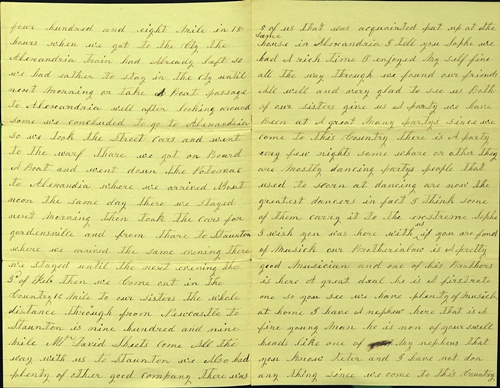 four hundred and eight mile in 18
hours when we got to the City the
Alexandria train had Already left so
we had either to stay in the City until
next Morning or take A Boat passage
to Alexandria well after looking around
some we concluded to go to Alexandria
so we took the Street Cars and went
to the warf thare we got on Board
A Boat and went down the Potomac
to Alexandia where we arrived About
noon the same day there we stayed
next Morning then took the Cars for
gordensville and from thare to Staunton
where we arrived the same evening there
we stayed until the next evening the
3d of Feb then we Came out in the
Country 10 mile to our sisters the whole
distance through from Newcastle to
Staunton is nine hundred and nine
mile Mr David Sheets Come All the
way with us to Staunton we Also had
plenty of other good Company thare was
5 of us that was acquainted put up at the
same
house in Alexandria I tell you Sophe we
had A rich time I enjoyed My self fine
all the way through we found our friends
All well and very glad to see us Both
of our sisters give us A party we have
Been at A great Many partys since we
come to this Country there is A party
evry few nights some whare or other they
are mostly dancing partys people that
used to scorn at dancing are now the
greatest dancers in fact I think some
of them carry it to the exstreme Sophe
I wish you was here with us if you are fond
of Musick our Brotherinlaw is A pretty
good Musician and one of his Brothers
is here A great deal he is A first rate
one so you see we have plenty of Musick
at home I have A nephew here that is A
fine young Man he is non of your swell
heads like one of My nephews that
you know Peter and I have not don
any thing since we come to this Country